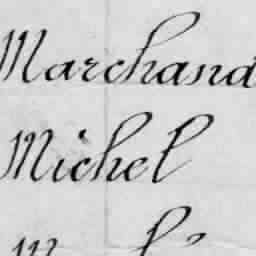 Marchand
Michel